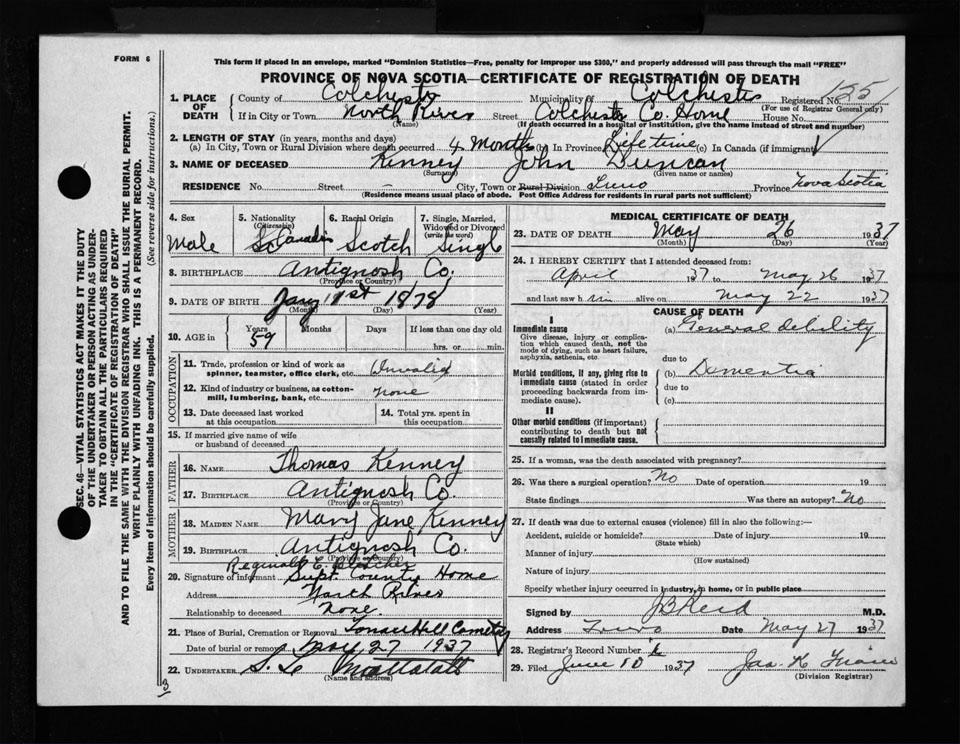 FORM 6
This form if placed in an envelope, marked "Dominion Statistics—Free, penalty for improper use $300," and properly addressed will pass through the mail "FREE"
PROVINCE OF NOVA SCOTIA—CERTIFICATE OF REGISTRATION OF DEATH
1. PLACE OF DEATH
County of Colchester Municipality of Colchester Registered No. 125
(For use of Registrar General only)
If in City or Town North River Street Colchester Co. Home House No.
(Name) (If death occurred in a hospital or institution, give the name instead of street and number)
2. LENGTH OF STAY (in years, months and days)
(a) In City, Town or Rural Division where death occurred 4 Months (b) In Province Lifetime (c) In Canada (if immigrant)
3. NAME OF DECEASED Kenney John Duncan
(Surname) (Given name or names)
RESIDENCE No. Street — City, Town or Rural Division Truro Province Nova Scotia
(Residence means usual place of abode. Post Office Address for residents in rural parts not sufficient)
4. Sex Male
5. Nationality (Citizenship) Canadian
6. Racial Origin Scotch
7. Single, Married, Widowed or Divorced (write the word) Single
8. BIRTHPLACE Antignosh Co.
(Province or Country)
9. DATE OF BIRTH Jany 1st 1878
(Month) (Day) (Year)
10. AGE in Years 59 Months Days If less than one day old
hrs. or min.
OCCUPATION
11. Trade, profession or kind of work as spinner, teamster, office clerk, etc. Invalid
12. Kind of industry or business, as cotton-mill, lumbering, bank, etc. none
13. Date deceased last worked at this occupation
14. Total yrs. spent in this occupation
15. If married give name of wife or husband of deceased
FATHER
16. NAME Thomas Kenney
17. BIRTHPLACE Antignosh Co.
(Province or Country)
MOTHER
18. MAIDEN NAME Mary Jane Kenney
19. BIRTHPLACE Antignosh Co.
(Province or Country)
Reginald E.
20. Signature of informant Supt. County Home
Address North River
Relationship to deceased None.
21. Place of Burial, Cremation or Removal Cemetery
Date of burial or removal May 27 1937
22. UNDERTAKER
(Name and address)
3
MEDICAL CERTIFICATE OF DEATH
23. DATE OF DEATH May 26 1937
(Month) (Day) (Year)
24. I HEREBY CERTIFY that I attended deceased from:
April 1937 to May 26 1937
and last saw him alive on May 22 1937
CAUSE OF DEATH
I
Immediate cause
Give disease, injury or complication which caused death, not the mode of dying, such as heart failure, asphyxia, asthenia, etc.
(a) General debility
due to
Morbid conditions, if any, giving rise to immediate cause (stated in order proceeding backwards from immediate cause).
(b) Dementia
due to
(c)
II
Other morbid conditions (if important) contributing to death but not causally related to immediate cause.
25. If a woman, was the death associated with pregnancy?
26. Was there a surgical operation? No Date of operation 19
State findings Was there an autopsy? No
27. If death was due to external causes (violence) fill in also the following:—
Accident, suicide or homicide? Date of injury 19
(State which)
Manner of injury
(How sustained)
Nature of injury
Specify whether injury occurred in industry, in home, or in public place
Signed by J B Reid M.D.
Address Truro Date May 27 1937
28. Registrar's Record Number
29. Filed June 10 1937 Jas. K
(Division Registrar)
SEC. 46—VITAL STATISTICS ACT MAKES IT THE DUTY
OF THE UNDERTAKER OR PERSON ACTING AS UNDER-
TAKER TO OBTAIN ALL THE PARTICULARS REQUIRED
IN THE "CERTIFICATE OF REGISTRATION OF DEATH"
AND TO FILE THE SAME WITH THE DIVISION REGISTRAR WHO SHALL ISSUE THE BURIAL PERMIT.
WRITE PLAINLY WITH UNFADING INK. THIS IS A PERMANENT RECORD.
Every item of information should be carefully supplied. (See reverse side for instructions.)